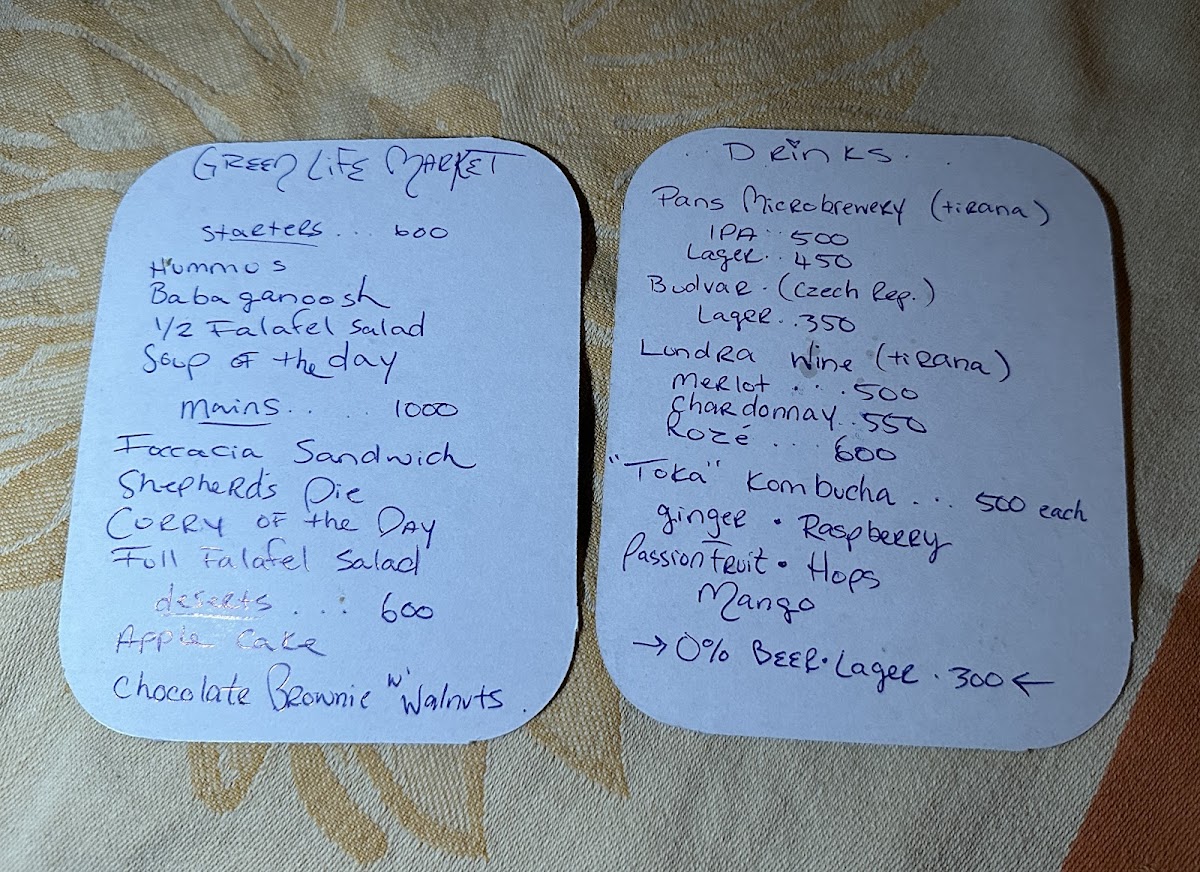 GREEN LIFE MARKET
starters ... 600
Hummus
Babaganoosh
1/2 Falafel Salad
Soup of the day
mains ..... 1000
Foccacia Sandwich
Shepherd's Pie
CURRY OF the DAY
Full Falafel Salad
deserts .... 600
Apple Cake
Chocolate Brownie w' Walnuts.
DRinks
Pans Microbrewery (tirana)
IPA .. 500
Lager .. 450
Budvar. (Czech Rep.)
Lager .. 350
Lundra Wine (tirana)
Merlot .... 500
Chardonnay .. 550
Rozé .... 600
"Toka" Kombucha ... 500 each
ginger • Raspberry
Passionfruit • Hops
Mango
→ 0% BEER • Lager • 300 ←